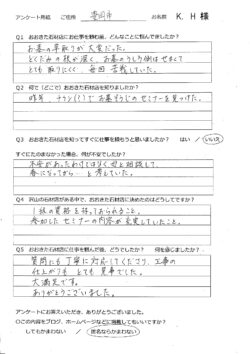 アンケート用紙 ご住所 豊岡市 お名前 K. H 様
Q1 おおきた石材店にお仕事を頼むまで、どんなことに悩んでましたか?
お墓の草取りが大変だった。
とくに木の根が深く、お墓のうしろ側はせまくて
とても取りにくく 毎回苦戦していた。
Q2 何で(どこで)おおきた石材店を知りましたか?
昨年、チラシ(?)でお墓づくりのセミナーを見つけた。
Q3 おおきた石材店を知ってすぐに仕事を頼もうと思いましたか? はい / いいえ
すぐにたのまなかった場合、何が不安でしたか?
不安があったわけではなく 母と相談して
春になってから… と考えていた。
Q4 沢山の石材店がある中で、おおきた石材店に決めたのはどうしてですか?
1級の資格を持っておられること。
参加したセミナーの内容が充実していたこと。
Q5 おおきた石材店に仕事を頼んで後、どうでしたか? 何を感じましたか?
質問にも丁寧に対応してくださり、工事の
仕上がりも とても 見事でした。
大満足です。
ありがとうございました。
アンケートにお答えいただき、ありがとうございました。
〇この内容をブログ、ホームページなどに掲載してもいいですか?
してもかまわない / 匿名ならかまわない